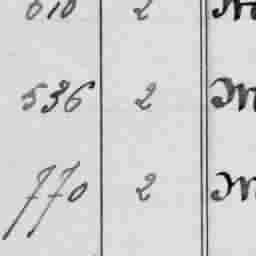 610 2
536 2 M
770 2 M